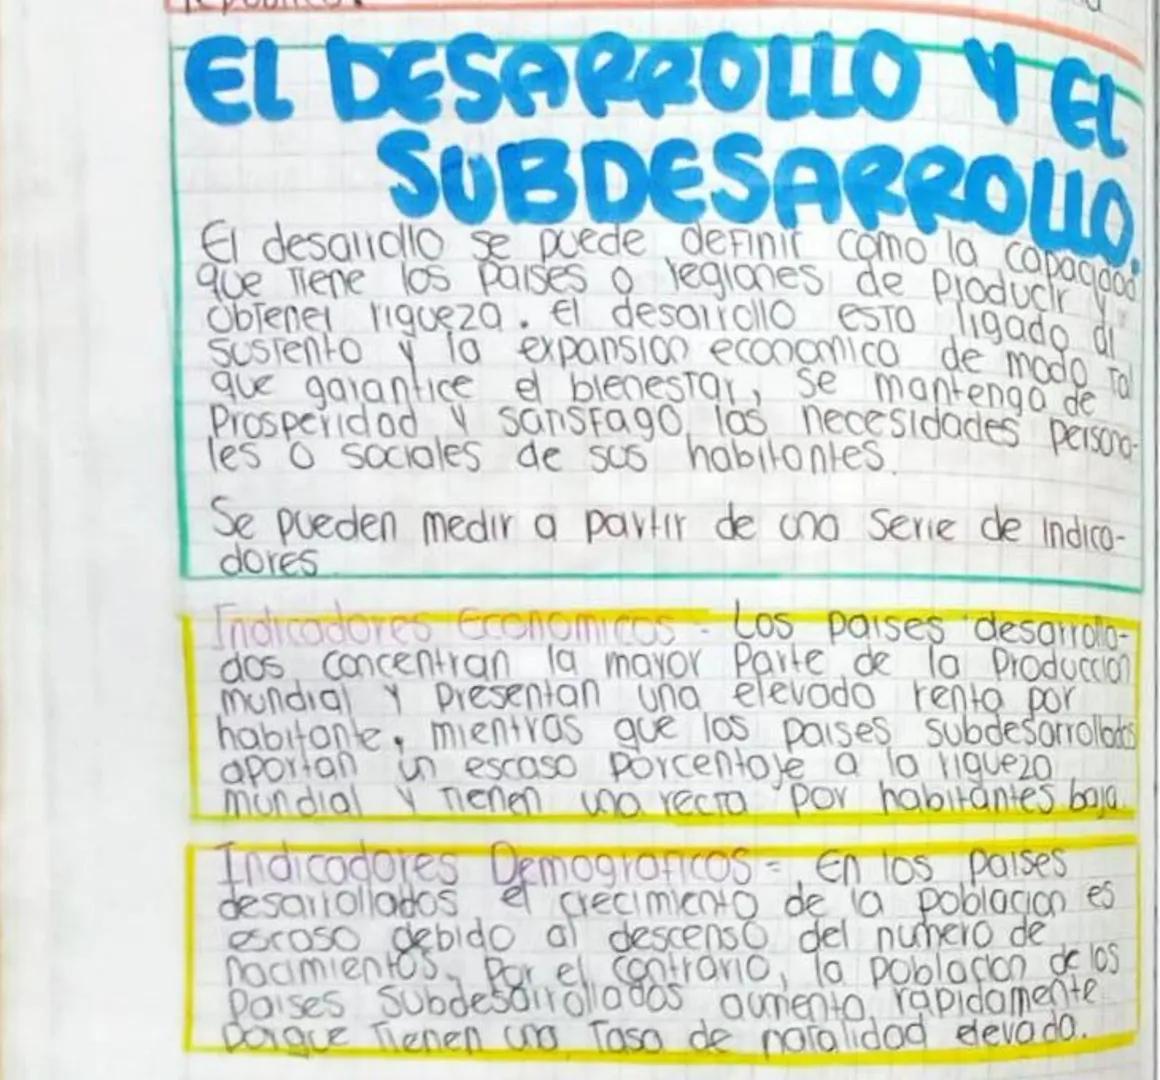 EL DESARROLLO Y EL
SUBDESARROLLO.
El desarrollo se puede definir como la capacidad
que tiene los paises o regiones de producir y
obtener riqueza. El desarrollo esta ligado al
sustento y la expansion economica de modo tal
que garantice el bienestar, se mantenga de
Prosperidad y satisfaga las necesidades persona-
les o sociales de sus habitantes.
Se pueden medir a partir de una serie de indica-
dores
Indicadores Economicos - Los paises desarrolla-
dos concentran la mayor Parte de la Produccion
mundial y Presentan una elevado renta por
habitante, mientras que los paises subdesarrollados
aportan un escaso porcentaje a la riqueza
mundial y tienen una recta por habitantes baja.
Indicadores Demograficos = En los paises
desarrollados el crecimiento de la poblacion es
escaso debido al descenso del numero de
nacimientos. Por el contrario, la poblacion de los
paises subdesarrollados aumenta rapidamente
porque tienen una tasa de natalidad elevada.